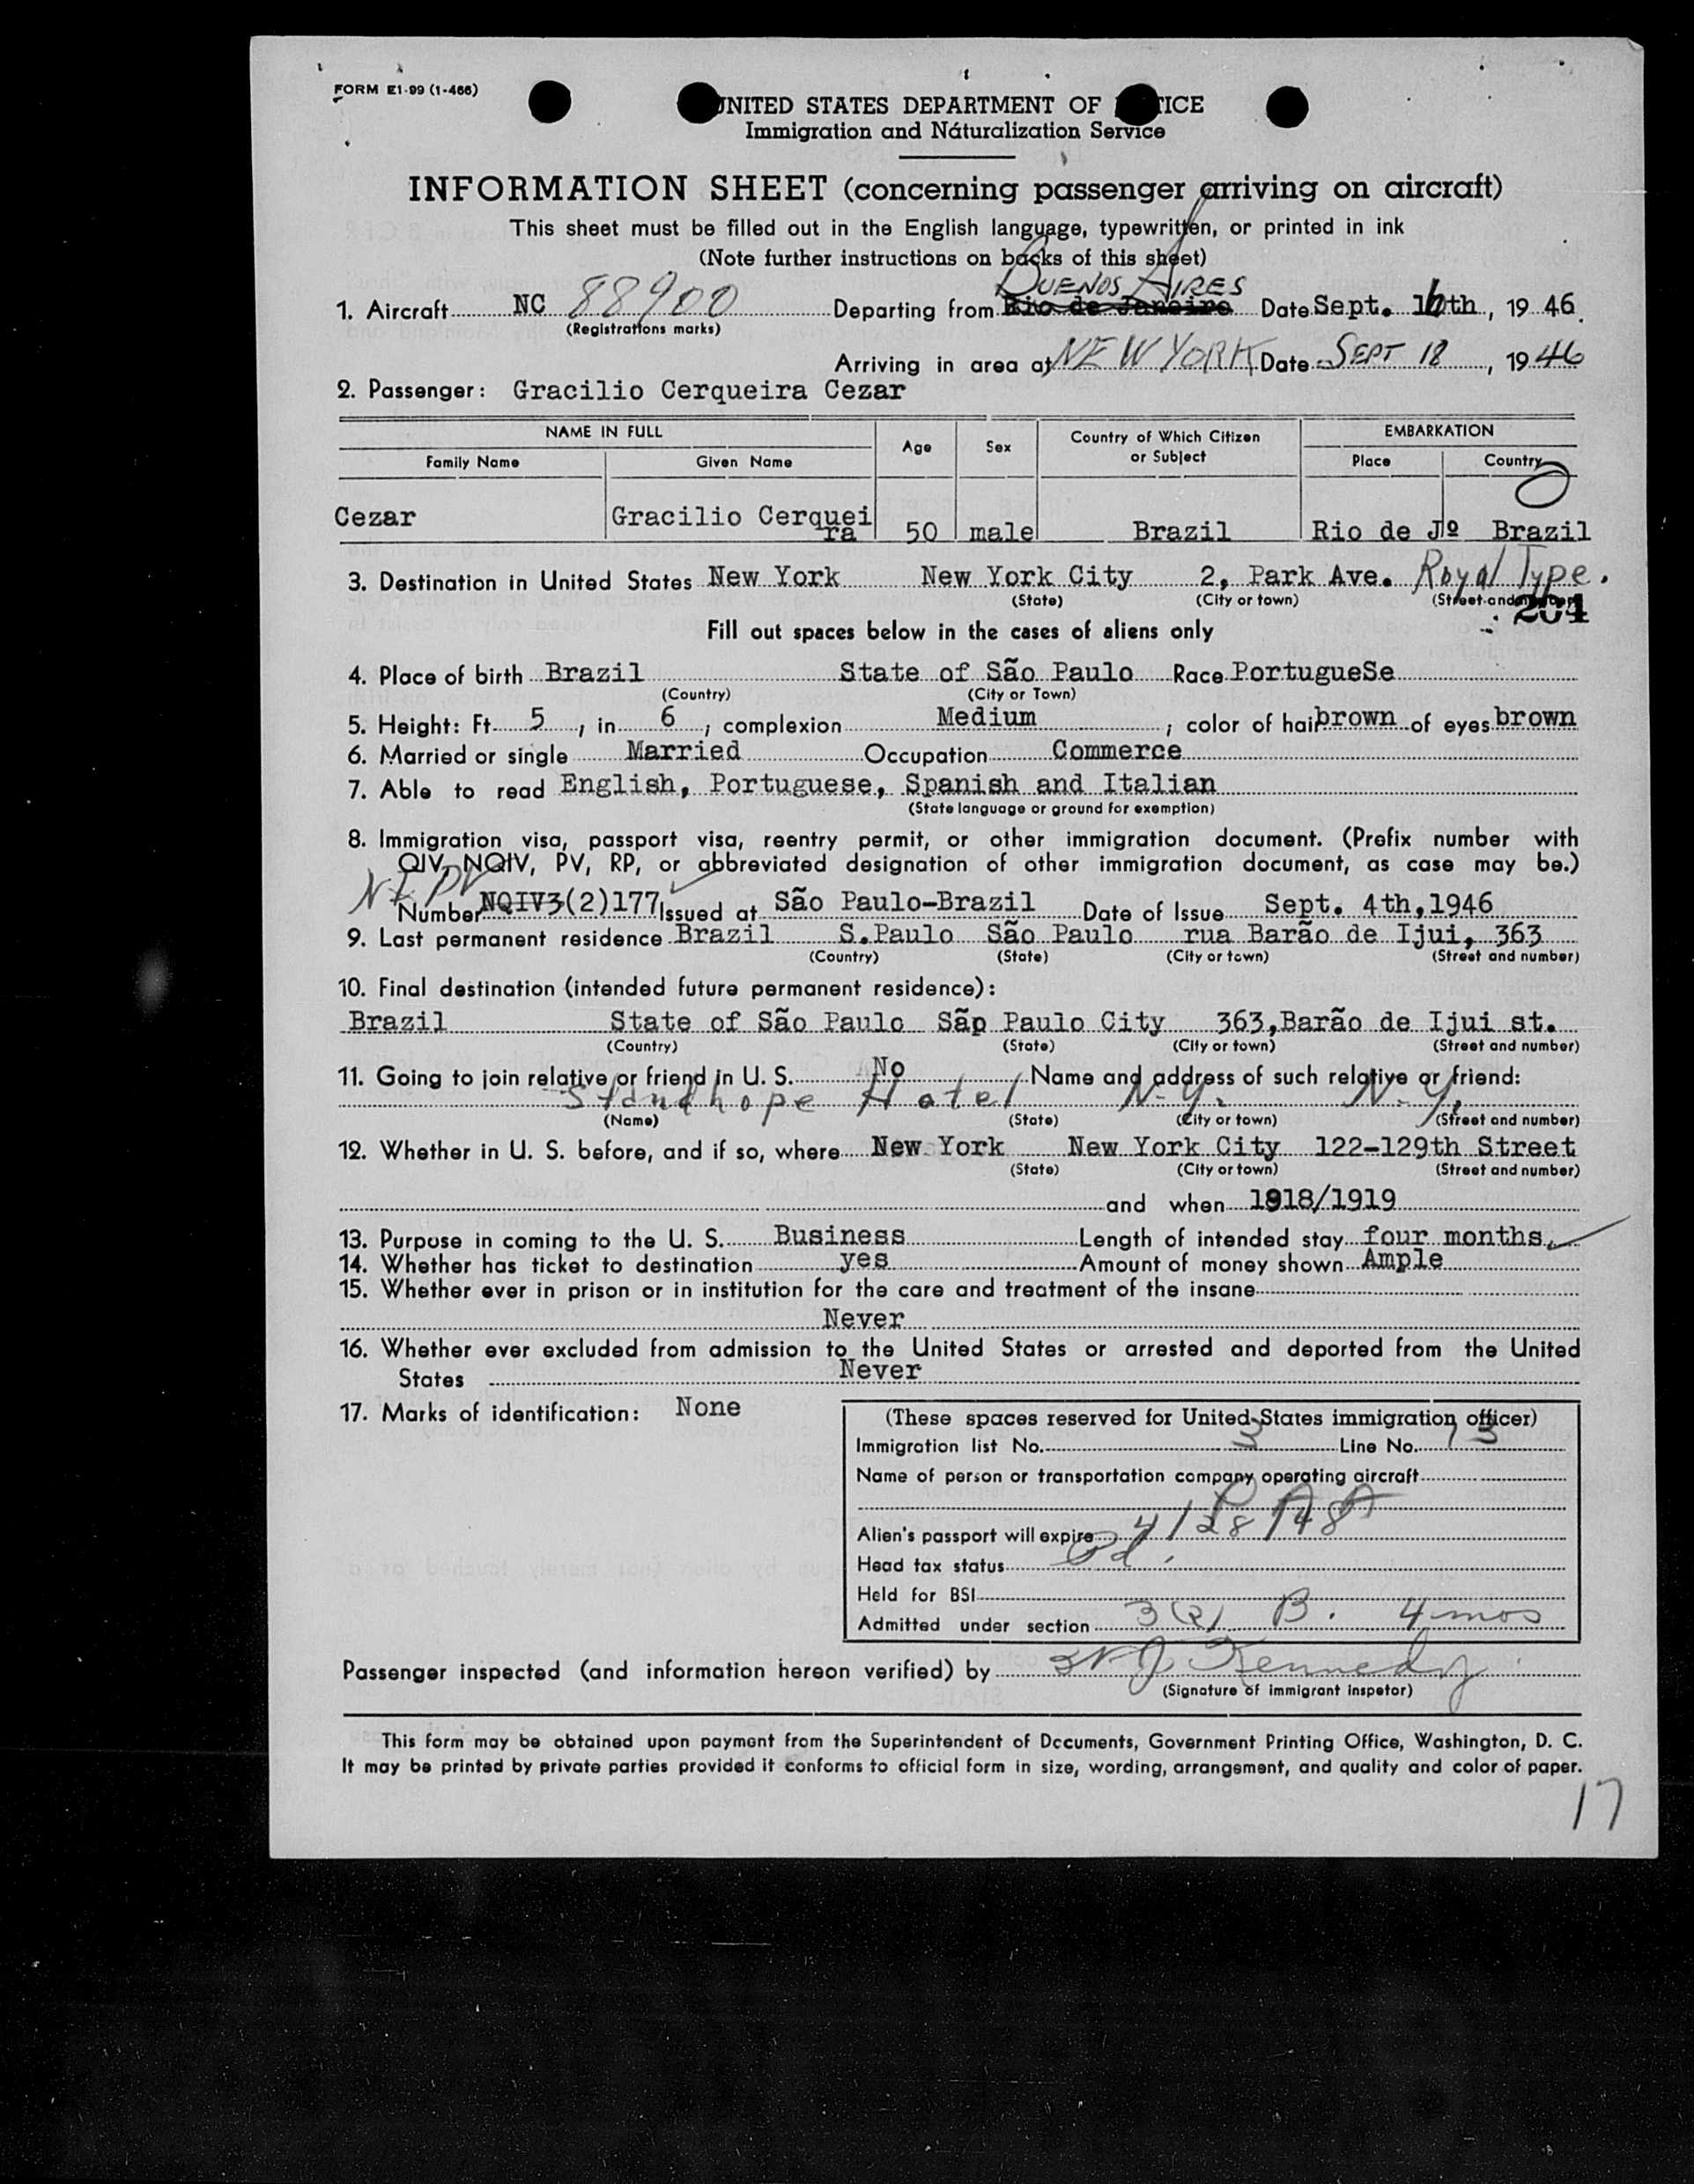 FORM E1-99 (1-466)
UNITED STATES DEPARTMENT OF TICE
Immigration and Naturalization Service
INFORMATION SHEET (concerning passenger arriving on aircraft)
This sheet must be filled out in the English language, typewritten, or printed in ink
(Note further instructions on backs of this sheet)
BUENOS AIRES
1. Aircraft NC 88900 Departing from Rio de Janeiro Date Sept. 16th, 19 46
(Registrations marks)
Arriving in area at NEW YORK Date SEPT 18, 19 46
2. Passenger: Gracilio Cerqueira Cezar
NAME IN FULL Age Sex Country of Which Citizen or Subject EMBARKATION
Family Name Given Name Place Country
Cezar Gracilio Cerquei
ra 50 male Brazil Rio de Jº Brazil
3. Destination in United States New York New York City 2, Park Ave. Royal Type.
(State) (City or town) (Street and number)
204
Fill out spaces below in the cases of aliens only
4. Place of birth Brazil State of São Paulo Race PortugueSe
(Country) (City or Town)
5. Height: Ft. 5, in. 6; complexion Medium; color of hair brown of eyes brown
6. Married or single Married Occupation Commerce
7. Able to read English, Portuguese, Spanish and Italian
(State language or ground for exemption)
8. Immigration visa, passport visa, reentry permit, or other immigration document. (Prefix number with
QIV, NQIV, PV, RP, or abbreviated designation of other immigration document, as case may be.)
NI PV
Number NQIV3(2)177 Issued at São Paulo-Brazil Date of Issue Sept. 4th,1946
9. Last permanent residence Brazil S.Paulo São Paulo rua Barão de Ijui, 363
(Country) (State) (City or town) (Street and number)
10. Final destination (intended future permanent residence):
Brazil State of São Paulo Sãp Paulo City 363,Barão de Ijui st.
(Country) (State) (City or town) (Street and number)
11. Going to join relative or friend in U. S. No Name and address of such relative or friend:
Standhope Hotel N.Y. N.Y.
(Name) (State) (City or town) (Street and number)
12. Whether in U. S. before, and if so, where New York New York City 122-129th Street
(State) (City or town) (Street and number)
and when 1918/1919
13. Purpose in coming to the U. S. Business Length of intended stay four months
14. Whether has ticket to destination yes Amount of money shown Ample
15. Whether ever in prison or in institution for the care and treatment of the insane
Never
16. Whether ever excluded from admission to the United States or arrested and deported from the United
States Never
17. Marks of identification: None
(These spaces reserved for United States immigration officer)
Immigration list No. 3 Line No. 13
Name of person or transportation company operating aircraft
P A A
Alien's passport will expire 4/28/48
Head tax status Pd.
Held for BSI
Admitted under section 3(2) B. 4 mos
Passenger inspected (and information hereon verified) by Kennedy
(Signature of immigrant inspetor)
This form may be obtained upon payment from the Superintendent of Documents, Government Printing Office, Washington, D. C.
It may be printed by private parties provided it conforms to official form in size, wording, arrangement, and quality and color of paper.
17